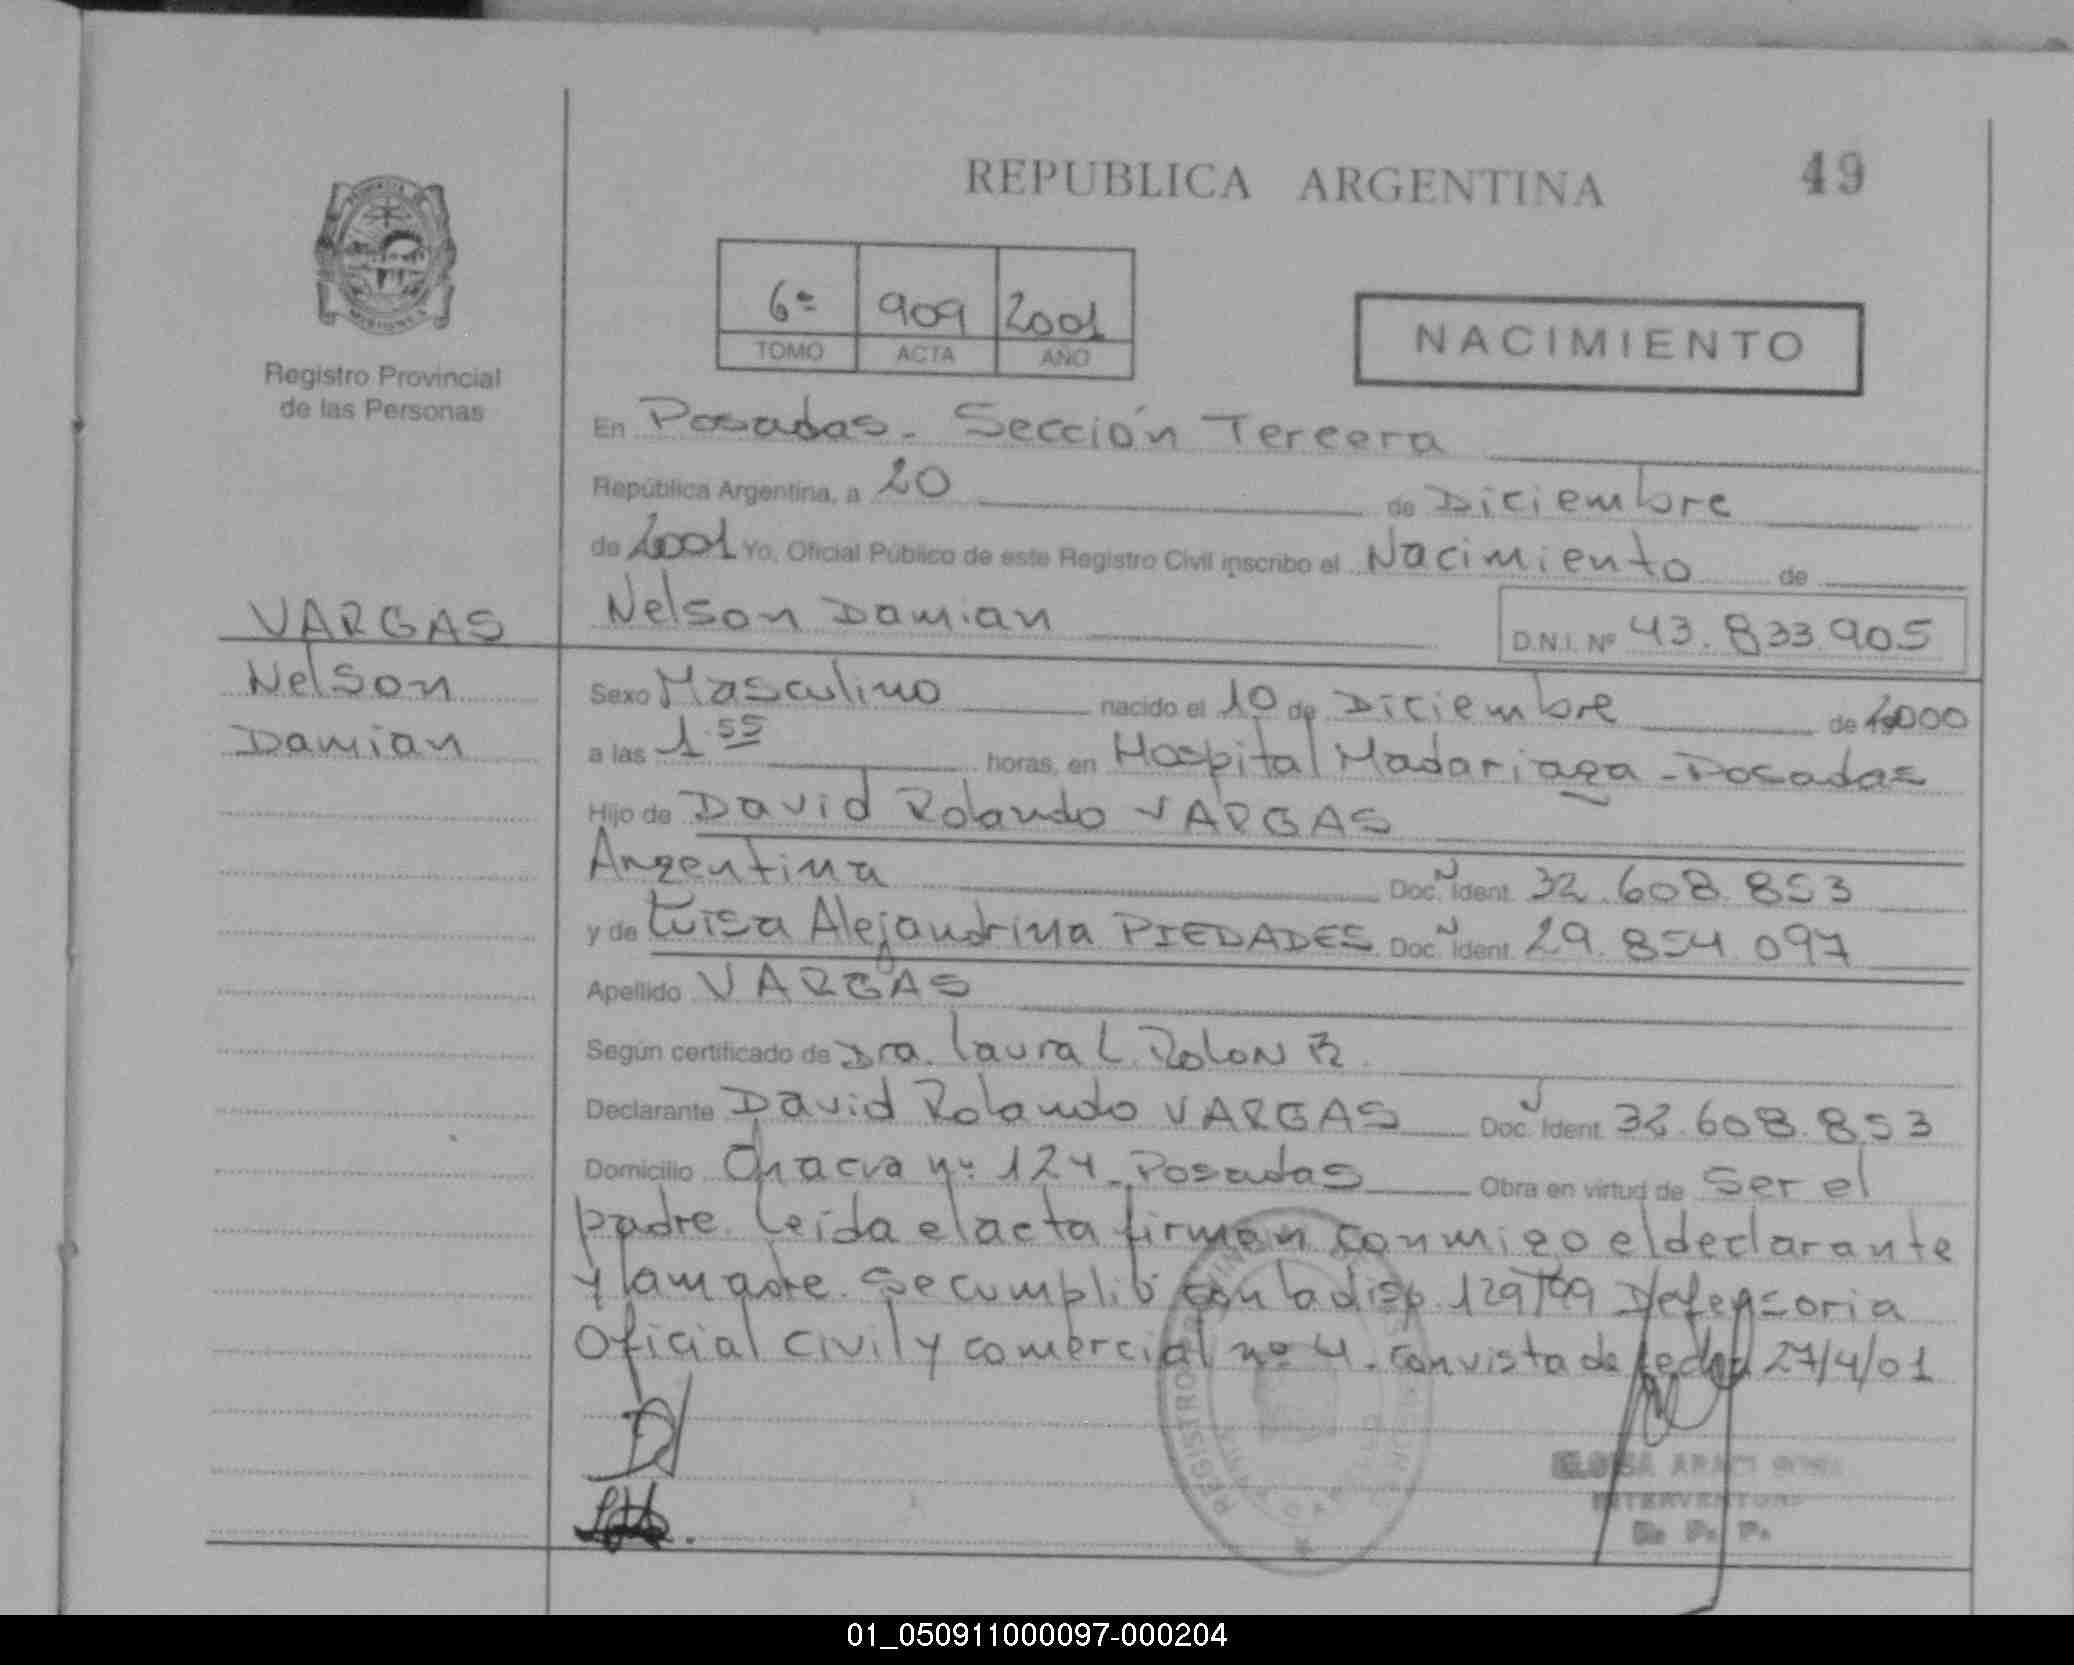 REPUBLICA ARGENTINA
49
6º 909 2001
TOMO ACTA AÑO
NACIMIENTO
Registro Provincial
de las Personas
En Posadas. Sección Tercera
República Argentina, a 20 de Diciembre
de 2001 Yo, Oficial Público de este Registro Civil inscribo el Nacimiento de
VARGAS
Nelson
Damian
Nelson Damian D.N.I. Nº 43.833.905
Sexo Masculino nacido el 10 de Diciembre de 2000
a las 1.55 horas, en Hospital Madariaga - Posadas
Hijo de David Rolando VARGAS
Argentina Doc. Ident. 32.608.853
y de Luisa Alejandrina PIEDADES Doc. Ident. 29.854.097
Apellido VARGAS
Según certificado de Dra. Laura L. Rolon R.
Declarante David Rolando VARGAS Doc. Ident. 32.608.853
Domicilio Chacra nº 124 - Posadas Obra en virtud de Ser el
padre. Leida el acta firman conmigo el declarante
y la madre. Se cumplió con la disp. 129/99 Defensoria
Oficial Civil y comercial nº 4. Con vista de fecha 27/4/01
REGISTRO PROVINCIAL
INTERVENTORA
01_050911000097-000204